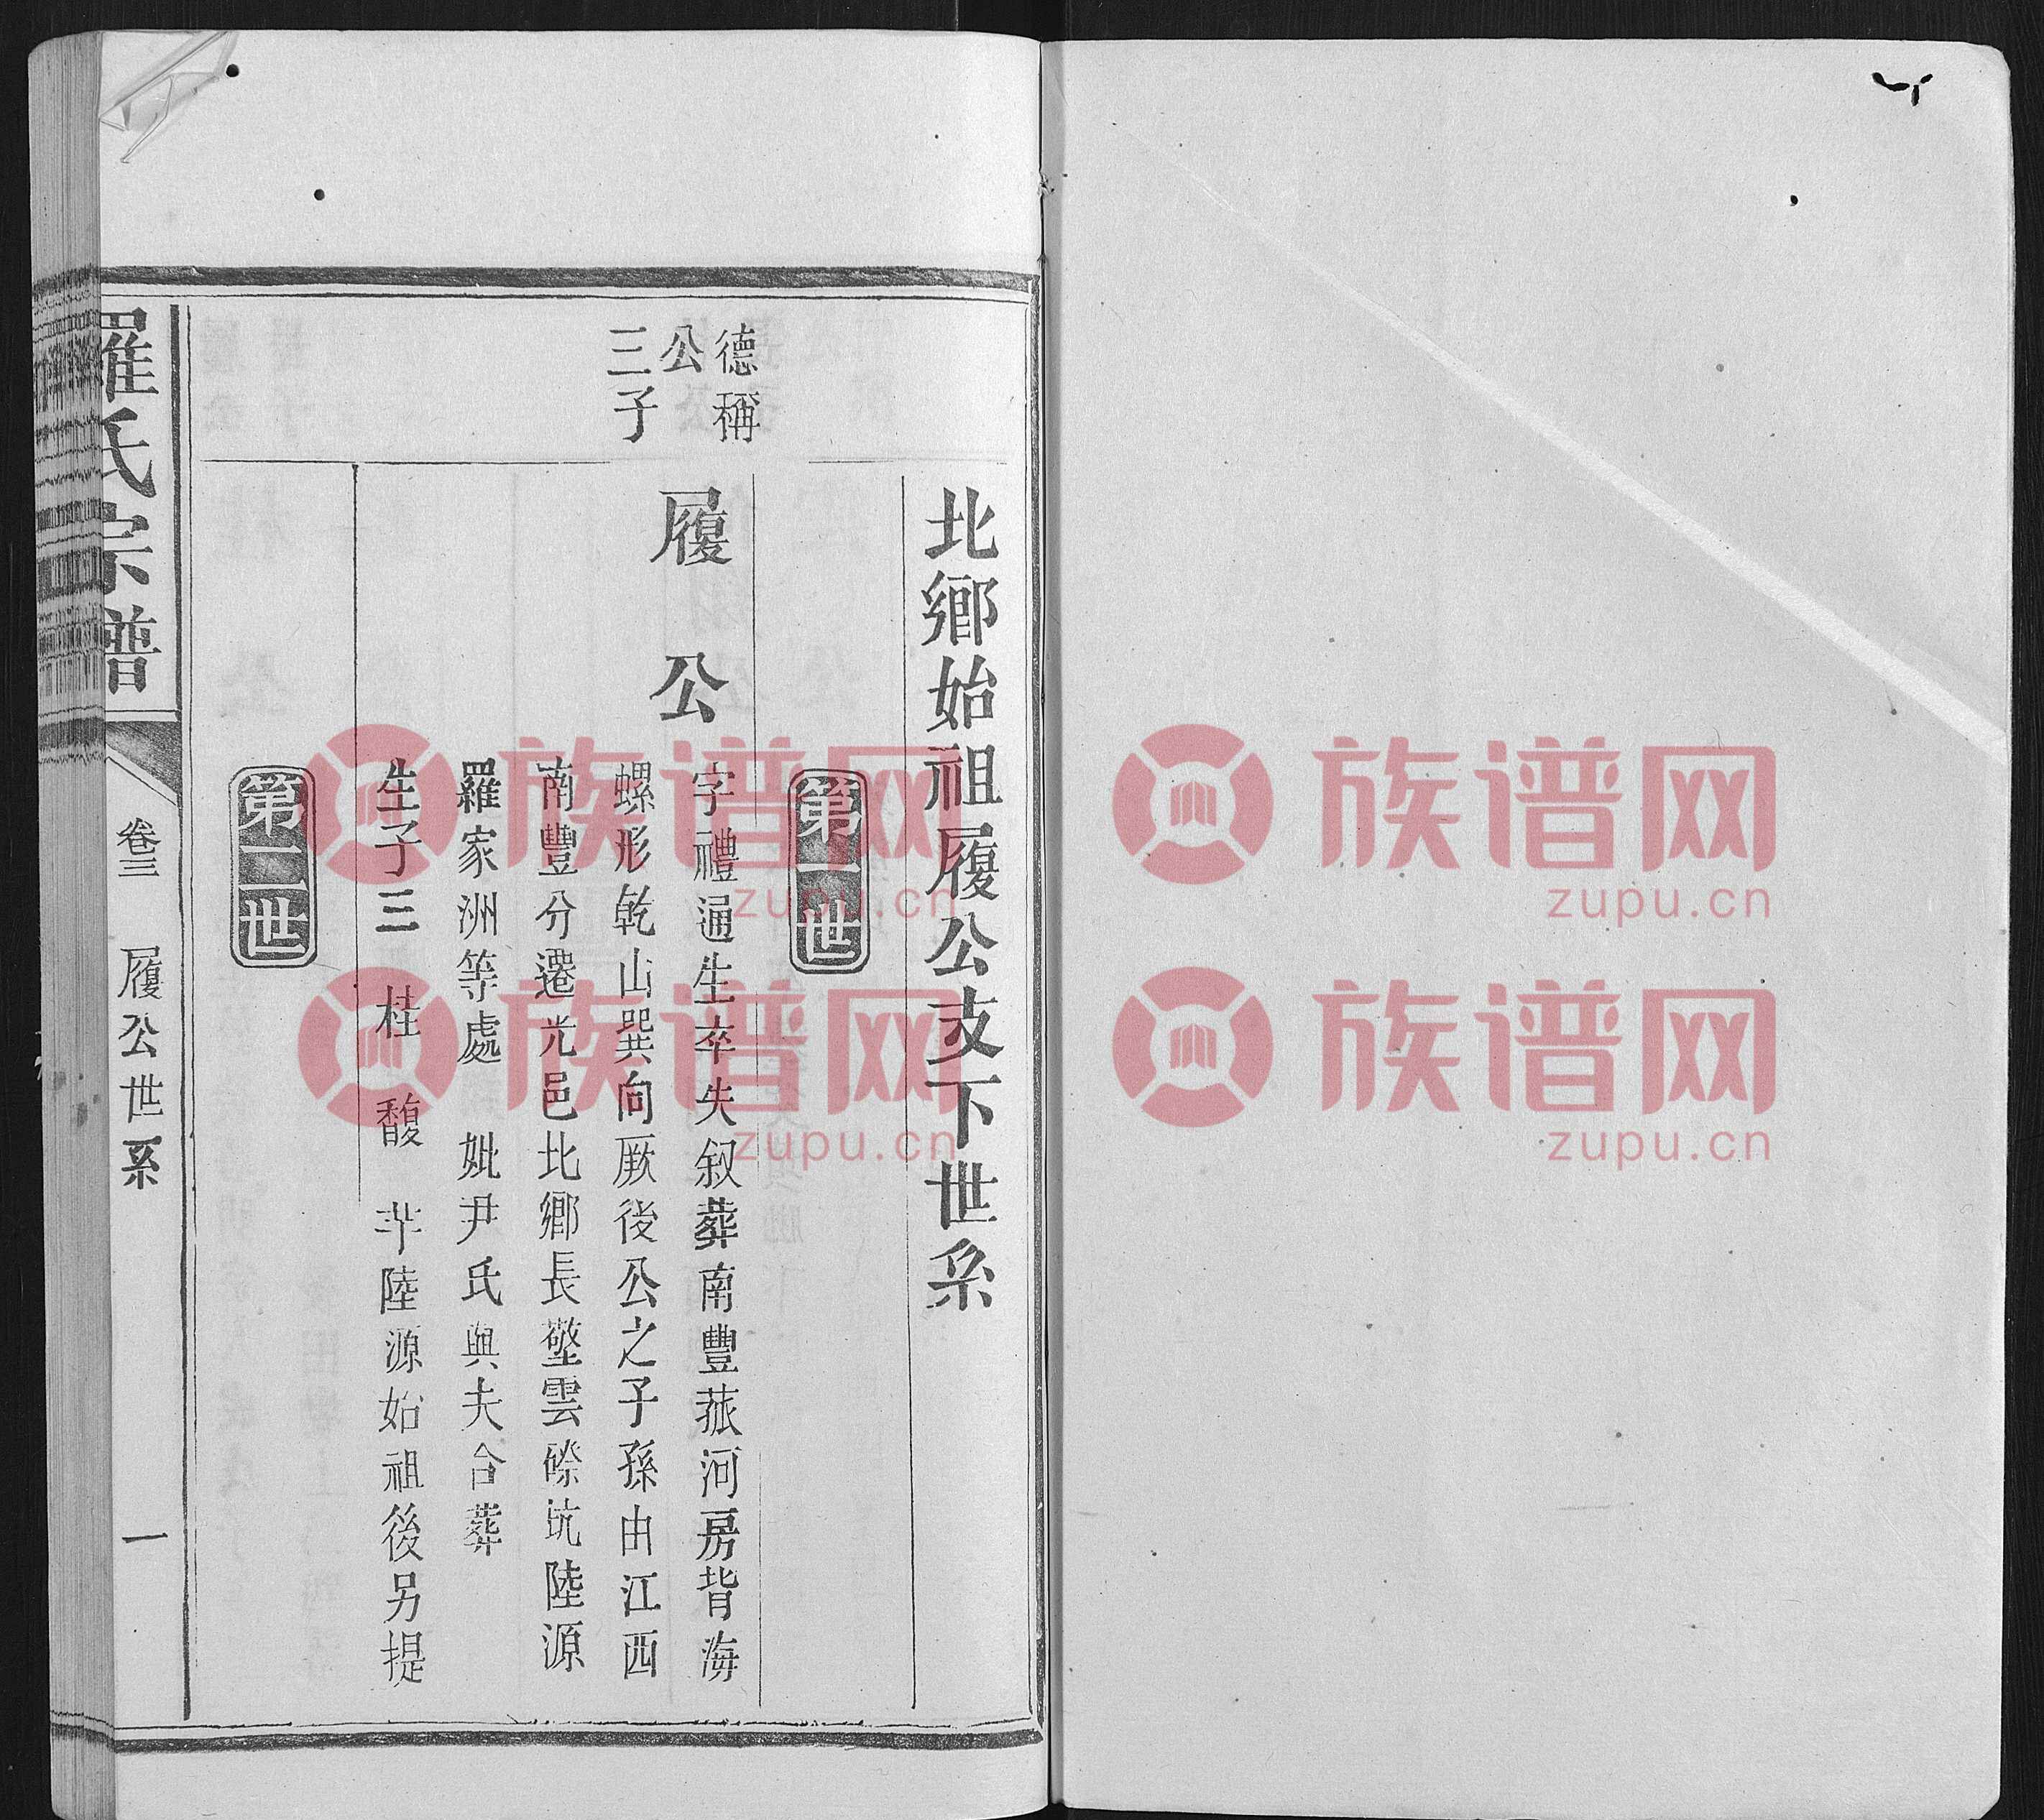 北鄉始祖履公支下世系
第一世
德稱
公
三子
履公
字禮通生卒失叙葬南豐菰河房背海
螺形乾山巽向厥後公之子孫由江西
南豐分遷光邑北鄉長壂雲磜坑陸源
羅家洲等處 妣尹氏與夫合葬
生子三 桂 馥 芉陸源始祖後另提
第二世
羅氏宗譜
卷三 履公世系
一
族谱网
zupu.cn
族谱网
zupu.cn
族谱网
zupu.cn
族谱网
zupu.cn